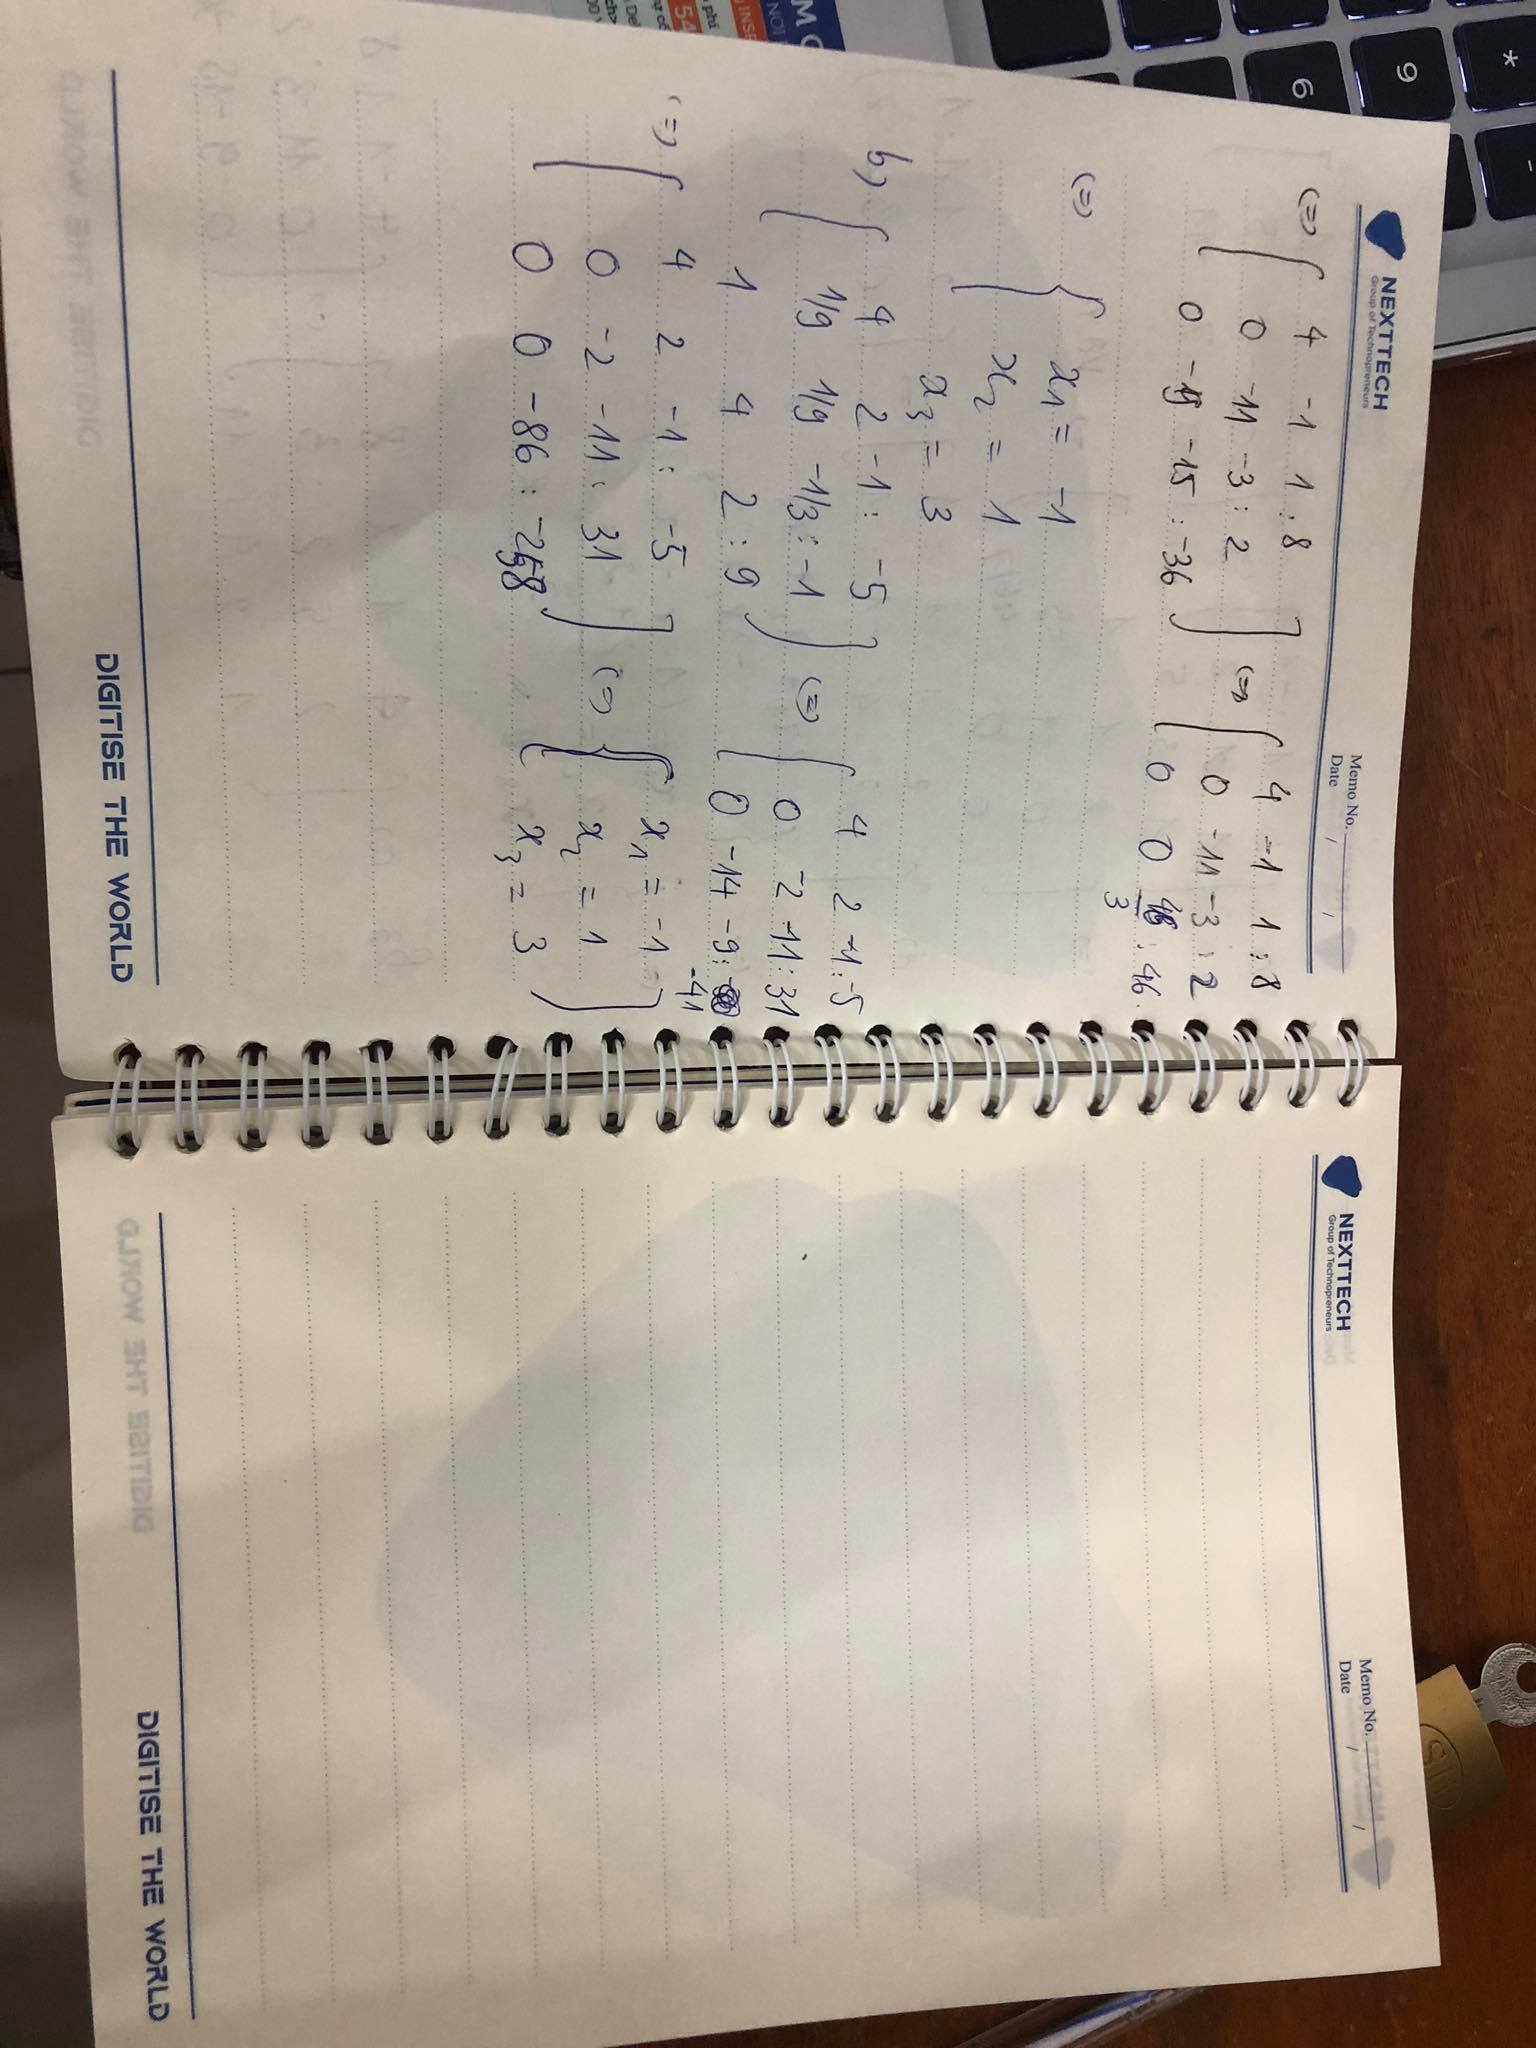 *
-
9
6
NEXTTECH
Group of Technopreneurs
Memo No.
Date / /
(=) 4 -1 1 : 8
0 -11 -3 : 2
0 -19 -15 : -36
(=) 4 -1 1 : 8
0 -11 -3 : 2
0 0 46/3 : 46
(=) x1 = -1
x2 = 1
x3 = 3
b) 4 2 -1 : -5
1/9 1/9 -1/3 : -1
1 4 2 : 9
(=) 4 2 -1 : -5
0 -2 -11 : 31
0 -14 -9 : -41
(=) 4 2 -1 : -5
0 -2 -11 : 31
0 0 -86 : -258
(=) x1 = -1
x2 = 1
x3 = 3
DIGITISE THE WORLD
NEXTTECH
Group of Technopreneurs
Memo No.
Date / /
DIGITISE THE WORLD